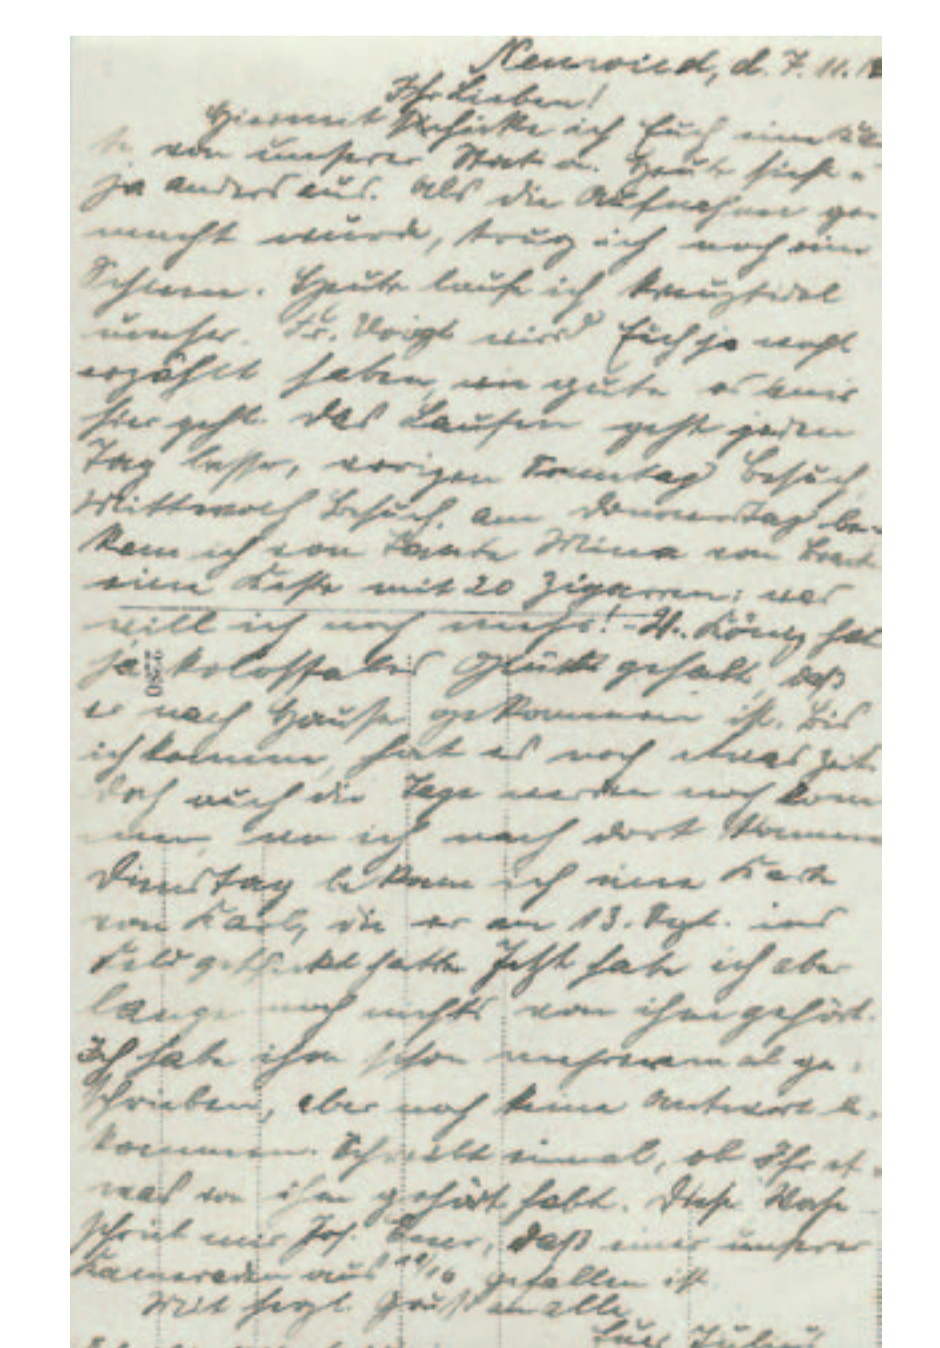 Neuwied, d. 7. 11. 1
Ihr Lieben!
Hiermit schicke ich Euch eine
von unserer Heute sieht
ja anders aus. Als die Aufnahme ge-
macht wurde, trug ich noch eine
Schiene. Heute laufe ich kreuzfidel
umher. Fr. Voigt wird Euch ja wohl
erzählt haben, wie gut es mir
hier geht. Das Laufen geht jeden
Tag besser, vorigen Sonntag Besuch,
Mittwoch Besuch, am Donnerstag be-
kam ich von Tante Mina von
eine Kiste mit 20 Zigarren; was
will ich noch mehr! H. König hat
ja kolossales Glück gehabt, daß
er nach Hause gekommen ist. Bis
ich komme, hat es noch etwas Zeit
doch auch die Tage werden noch kom
men, wo ich nach dort komme
Dienstag bekam ich eine Karte
von Karl, die er am 13. Sept. ins
Feld geschickt hatte. Jetzt habe ich aber
lange noch nichts von ihm gehört.
Ich habe ihm schon mehreremal ge-
schrieben, aber noch keine Antwort be-
kommen. Schreibt einmal, ob Ihr et-
was von ihm gehört habt. Diese Woche
schrieb mir Jos. daß einer unserer
Kameraden aus gefallen ist
Mit herzl. Gruß an alle
Euer Julius